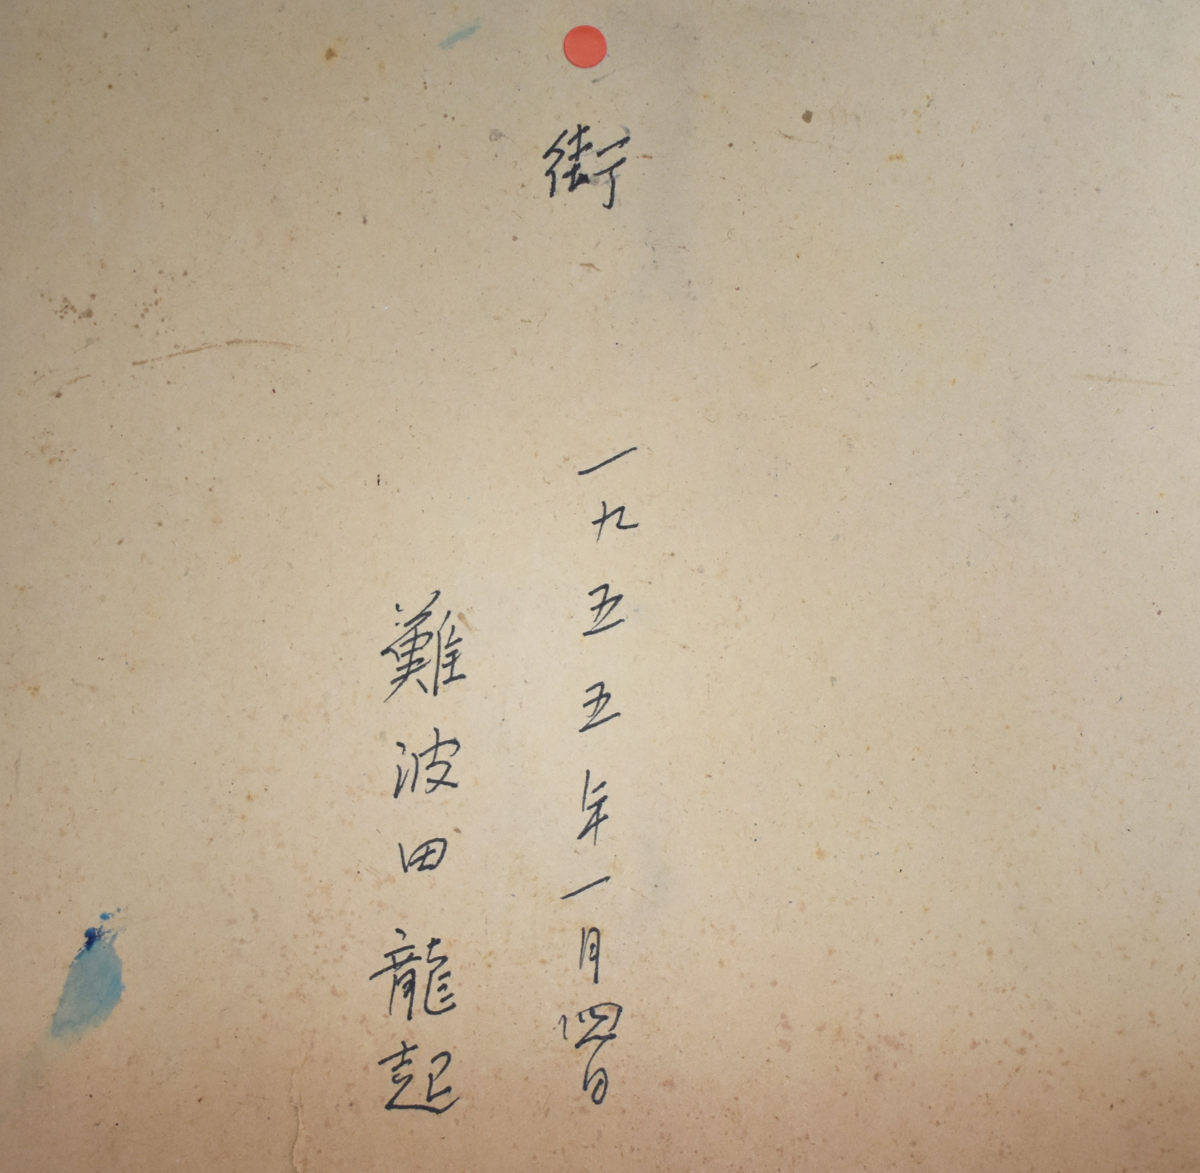 街
一九五五年一月四日
難波田龍起